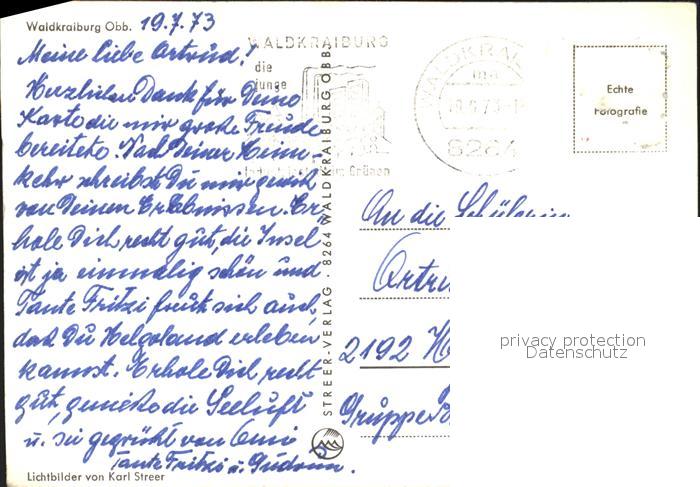 Waldkraiburg Obb. 19.7.73
Meine liebe Ortrud!
Herzlichen Dank für Deine
Karte die mir große Freude
bereitete. Nach Deiner Heim-
kehr schreibst Du mir gewiß
von Deinen Erlebnissen. Er-
hole Dich recht gut, die Insel
ist ja einmalig schön und
Tante Fritzi freut sich auch,
daß Du Helgoland erleben
kannst. Erhole Dich recht
gut, genieße die Seeluft
u. sei gegrüßt von Omi
Tante Fritzi u. Gudrun.
Lichtbilder von Karl Streer
STREER-VERLAG · 8264 WALDKRAIBURG OBB.
WALDKRAIBURG
die
junge
im Grünen
WALDKRAI
8264
Echte
Fotografie
An die Schülerin
Ortru
2192 H
Gruppe
privacy protection
Datenschutz